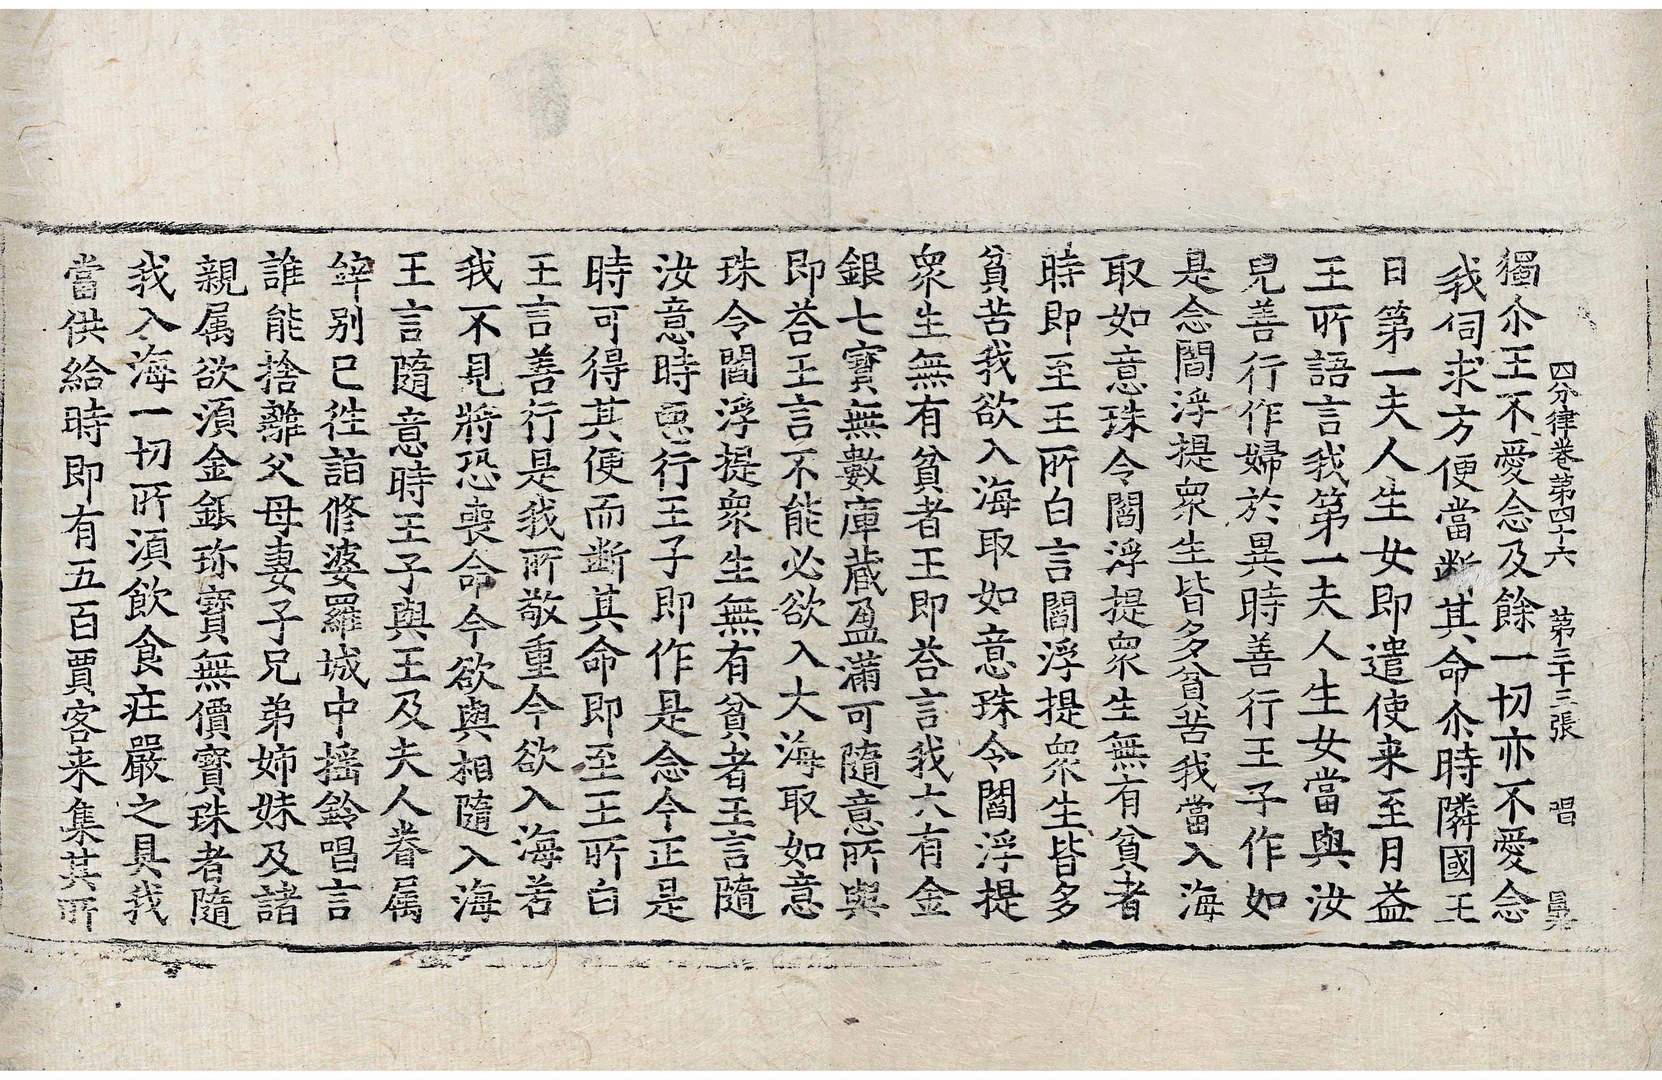 四分律卷第四十六　第三十三張　唱
獨尒王不愛念及餘一切亦不愛念
我伺求方便當斷其命尒時隣國王
日第一夫人生女即遣使来至月益
王所語言我第一夫人生女當與汝
兒善行作婦於異時善行王子作如
是念閻浮提衆生皆多貧苦我當入海
取如意珠令閻浮提衆生無有貧者
時即至王所白言閻浮提衆生皆多
貧苦我欲入海取如意珠令閻浮提
衆生無有貧者王即荅言我大有金
銀七寶無數庫蔵盈滿可隨意所與
即荅王言不能必欲入大海取如意
珠令閻浮提衆生無有貧者王言隨
汝意時惡行王子即作是念今正是
時可得其便而斷其命即至王所白
王言善行是我所敬重今欲入海若
我不見將恐喪命今欲與相隨入海
王言隨意時王子與王及夫人眷属
辝别已徃詣修婆羅城中揺鈴唱言
誰能捨離父母妻子兄弟姉妹及諸
親属欲湏金銀珎寶無價寶珠者隨
我入海一切所湏飲食疘嚴之具我
當供給時即有五百賈客来集其所